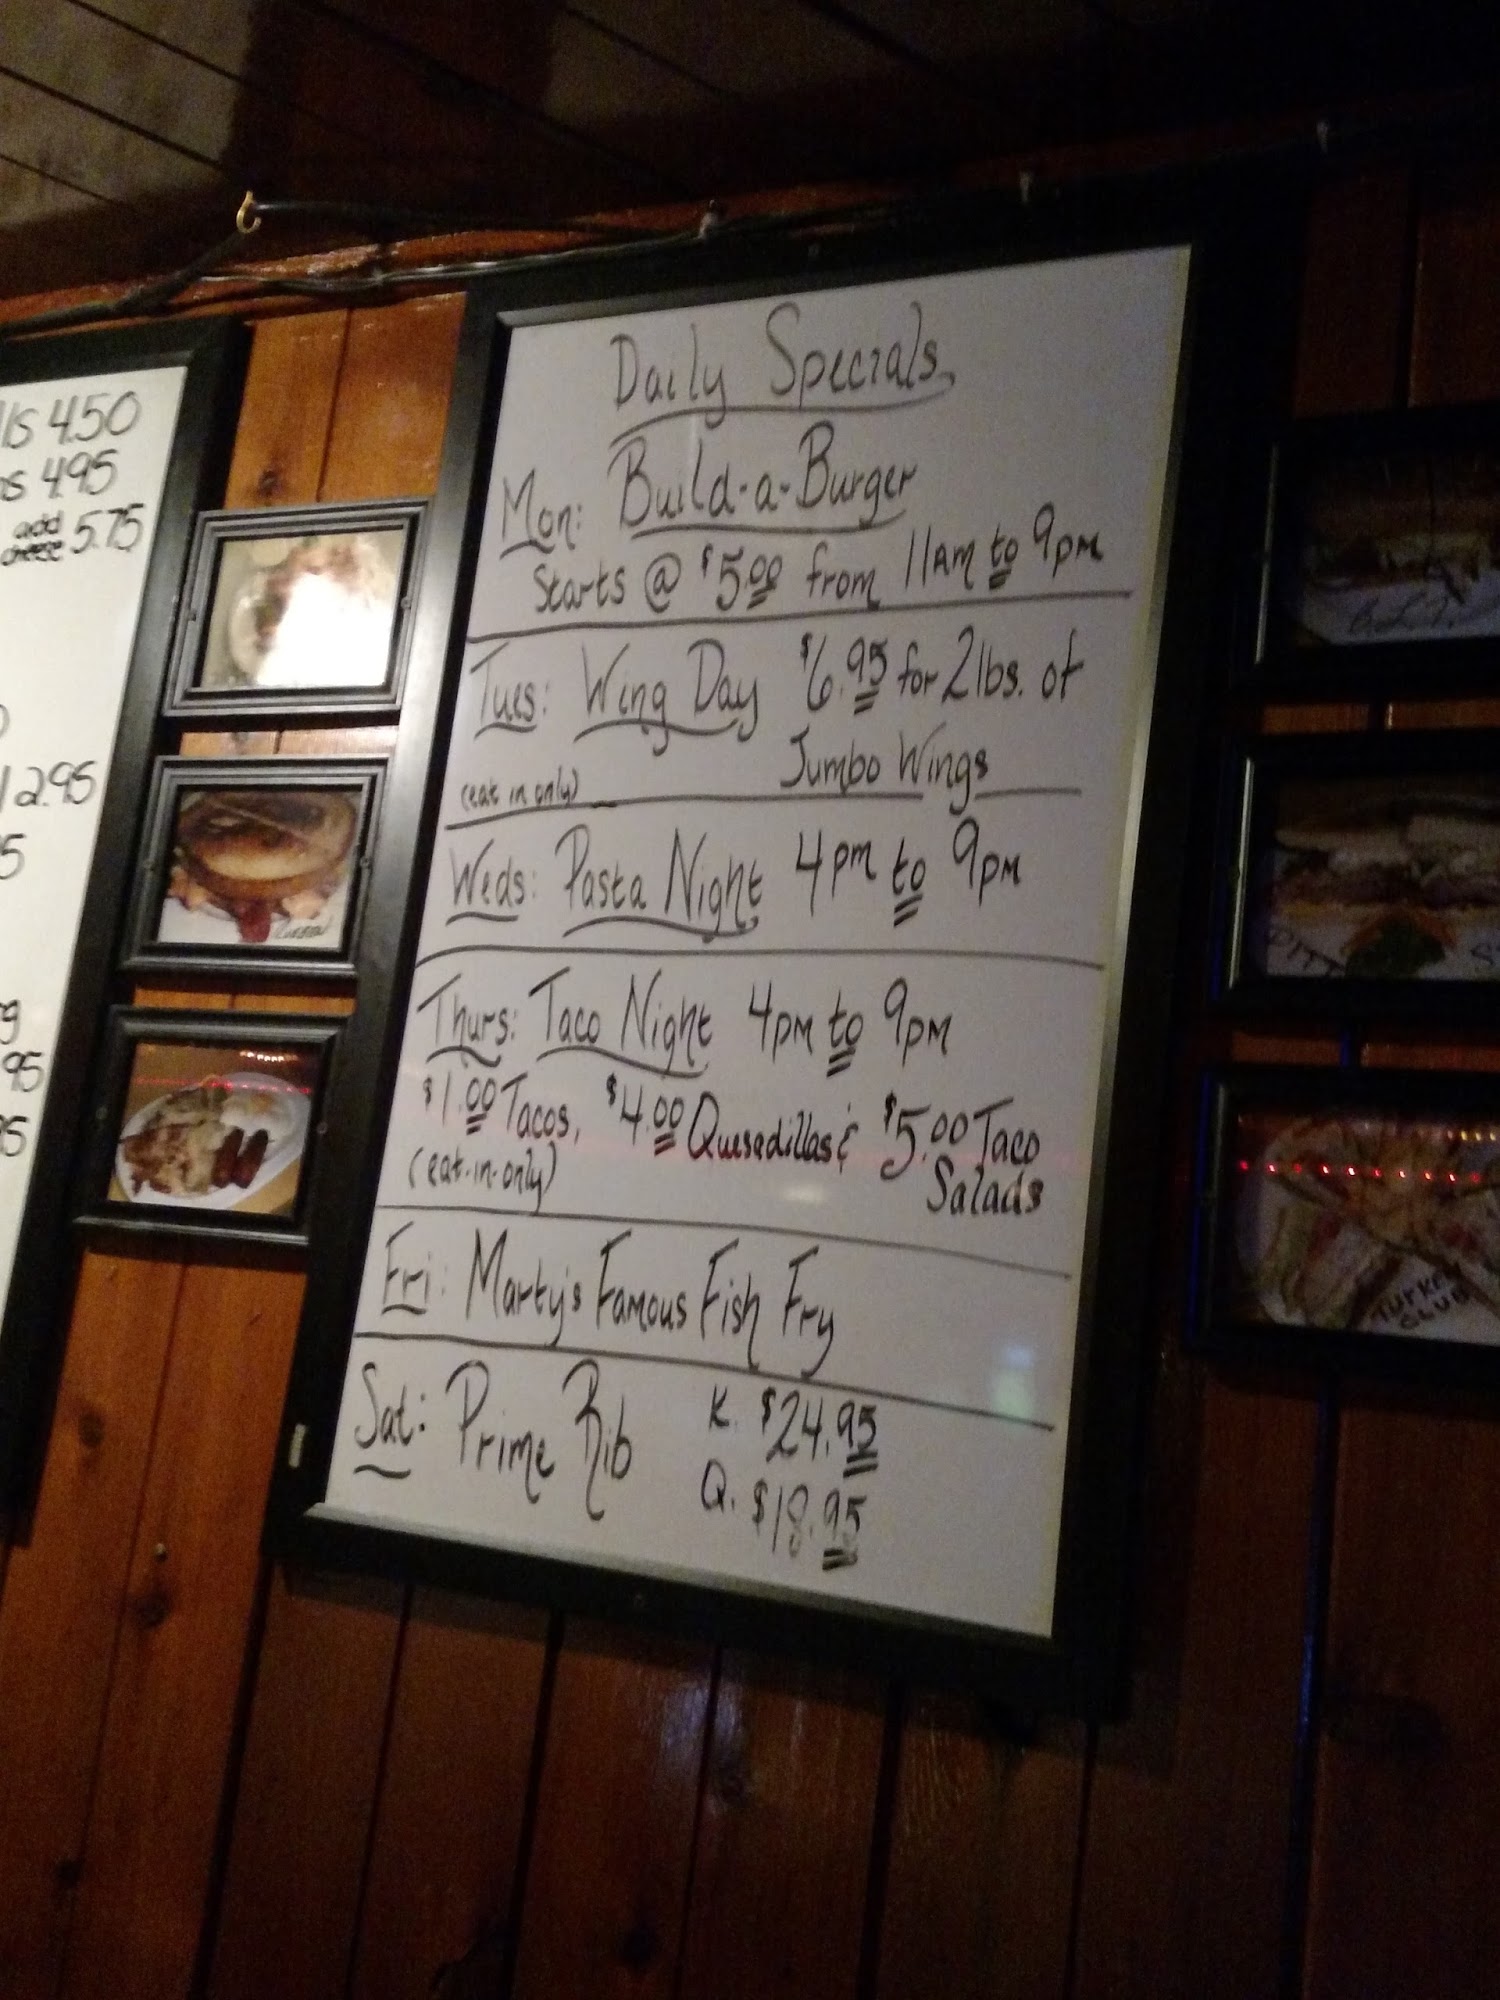 Daily Specials
Mon: Build-a-Burger
Starts @ $5.00 from 11AM to 9pm
Tues: Wing Day $6.95 for 2lbs. of
Jumbo Wings
(eat in only)
Weds: Pasta Night 4pm to 9pm
Thurs: Taco Night 4pm to 9pm
$1.00 Tacos, $4.00 Quesedillas & $5.00 Taco
Salads
(eat-in-only)
Fri: Marty's Famous Fish Fry
Sat: Prime Rib K. $24.95
Q. $18.95
4.50
4.95
add
cheese 5.75
12.95
B.L.T.
TURKEY
CLUB